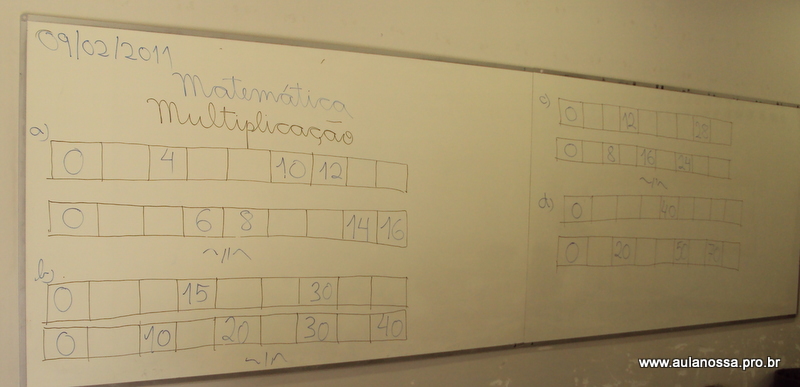 09/02/2011
Matemática
Multiplicação
a)
0 4 10 12
0 6 8 14 16
b)
0 15 30
0 10 20 30 40
c)
0 12 28
0 8 16 24
d)
0 40
0 20 50 70
www.aulanossa.pro.br